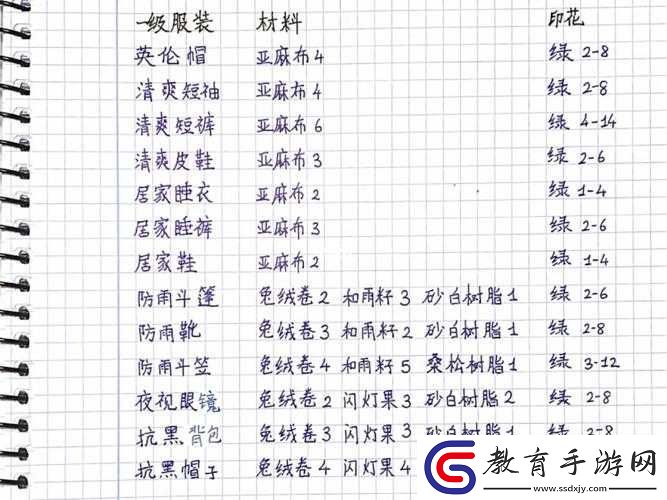 一级服装 材料 印花
英伦帽 亚麻布4 绿 2-8
清爽短袖 亚麻布4 绿 2-8
清爽短裤 亚麻布6 绿 4-14
清爽皮鞋 亚麻布3 绿 2-6
居家睡衣 亚麻布2 绿 1-4
居家睡裤 亚麻布3 绿 2-6
居家鞋 亚麻布2 绿 1-4
防雨斗篷 兔绒卷2 和雨籽3 砂白树脂1 绿 2-6
防雨靴 兔绒卷3 和雨籽2 砂白树脂1 绿 2-8
防雨斗笠 兔绒卷4 和雨籽5 桑松树脂1 绿 3-12
夜视眼镜 兔绒卷2 闪灯果3 砂白树脂2 绿 2-8
抗黑背包 兔绒卷3 闪灯果3 砂白树脂1 绿 2-8
抗黑帽子 兔绒卷4 闪灯果4
教育手游网
www.ssdxjy.com